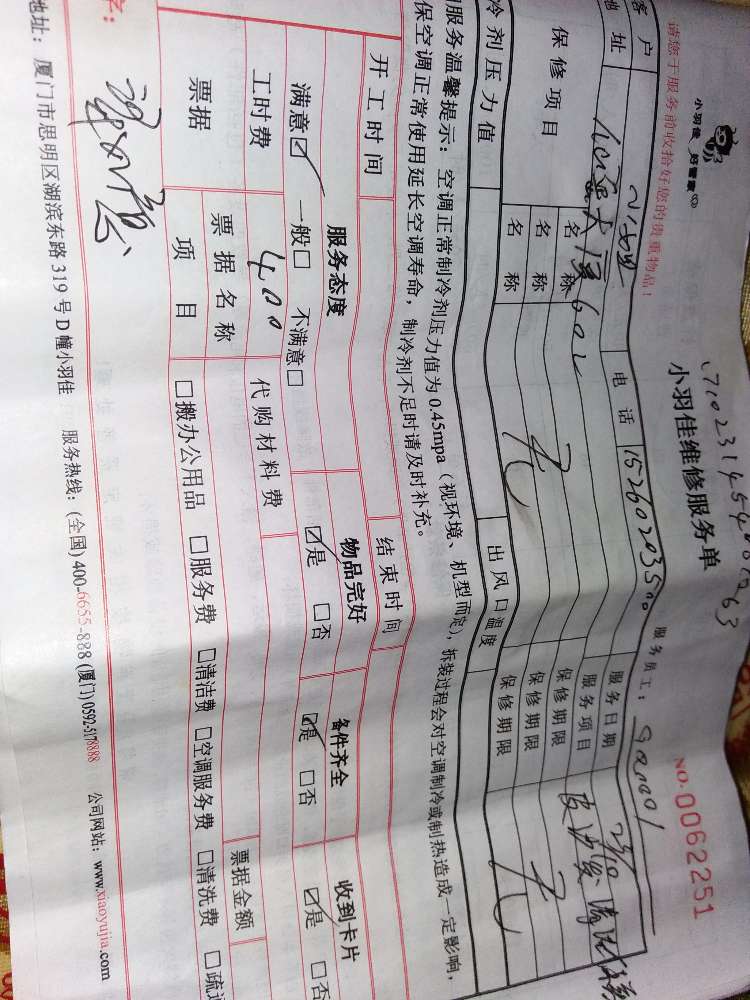 小羽佳 好管家
小羽佳维修服务单
NO.0062251
请您于服务前收拾好您的贵重物品！
服务员工：
客户
电话
服务日期 23/10
地址
602
服务项目
保修项目
名称
保修期限
名称
保修期限
名称
保修期限
冷剂压力值
出风口温度
服务温馨提示：空调正常制冷剂压力值为0.45mpa（视环境、机型而定），拆装过程会对空调制冷或制热造成一定影响，
保空调正常使用延长空调寿命，制冷剂不足时请及时补充。
开工时间
结束时间
服务态度
物品完好
备件齐全
收到卡片
满意☑ 一般□ 不满意□
☑是 □否
☑是 □否
☑是 □否
工时费
400
代购材料费
票据
票据名称
票据金额
项目
□搬办公用品 □服务费 □清洁费 □空调服务费 □清洗费 □疏
字：
地址：厦门市思明区湖滨东路319号D幢小羽佳 服务热线：(全国)400-6655-888 (厦门)0592-5178888 公司网站：www.xiaoyujia.com